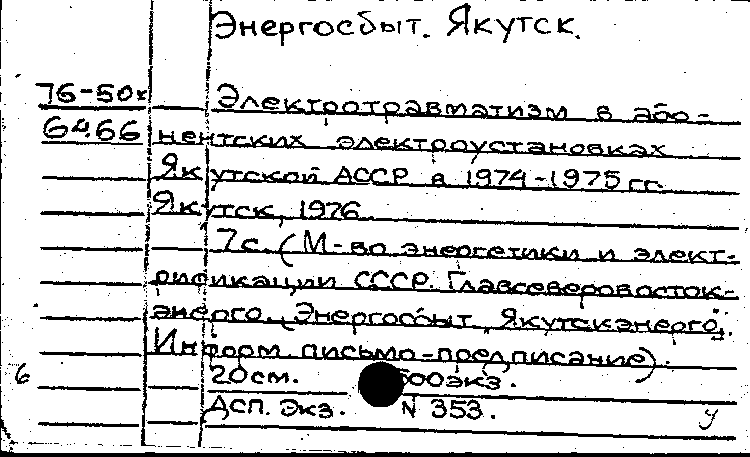 Энергосбыт. Якутск.
76-50к Электротравматизм в або-
6466 нентских электроустановках
Якутской АССР в 1974-1975 гг.
Якутск, 1976.
7с. (М-во энергетики и элект-
рификации СССР. Главсеверовосток-
энерго. Энергосбыт „Якутскэнерго".
Информ. письмо-предписание).
6 20см. 500экз.
Дсп. Экз. N 353. у